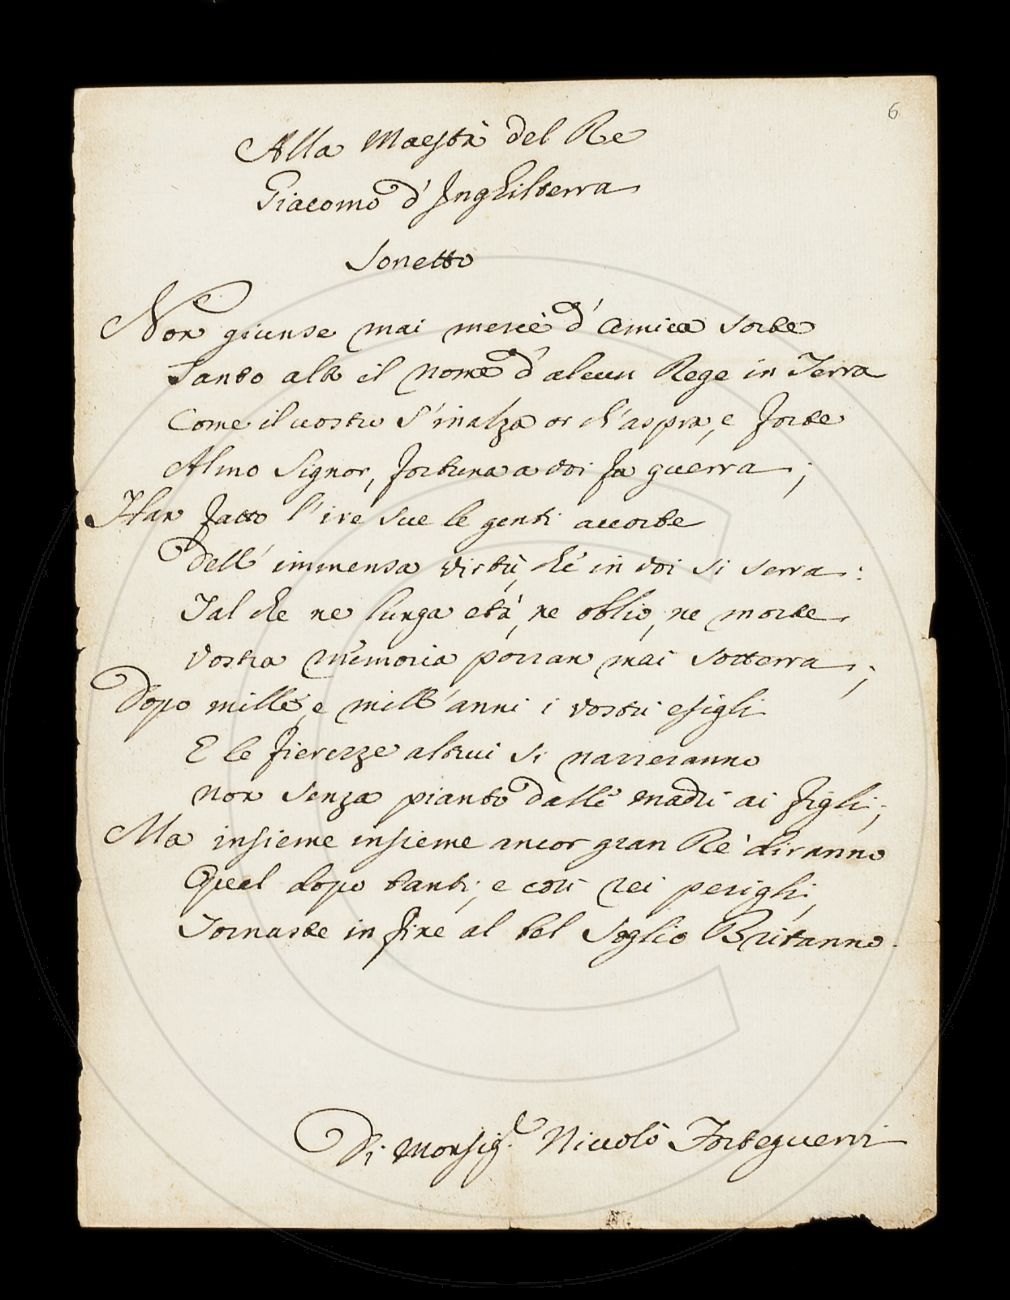 6
Alla Maestà del Re
Giacomo d'Inghilterra
Sonetto
Non giunse mai mercè d'amica sorte
Tanto alto il nome d'alcun Rege in Terra
Come il vostro s'inalza or ch'aspra, e forte
Almo Signor, fortuna a voi fa guerra;
Han fatto l'ire sue le genti accorte
Dell'immensa virtù, che in voi si serra:
Tal che ne lunga età, ne oblio, ne morte
Vostra memoria porran mai sotterra;
Dopo mille, e mill'anni i vostri esigli
E le fierezze altrui si narreranno
Non senza pianto dalle madri ai figli;
Ma insieme insieme ancor gran Re diranno
Quel dopo tanti, e così rei perigli,
Tornaste in fine al bel Soglio Britanno.
Di Monsig.e Niccolò Forteguerri